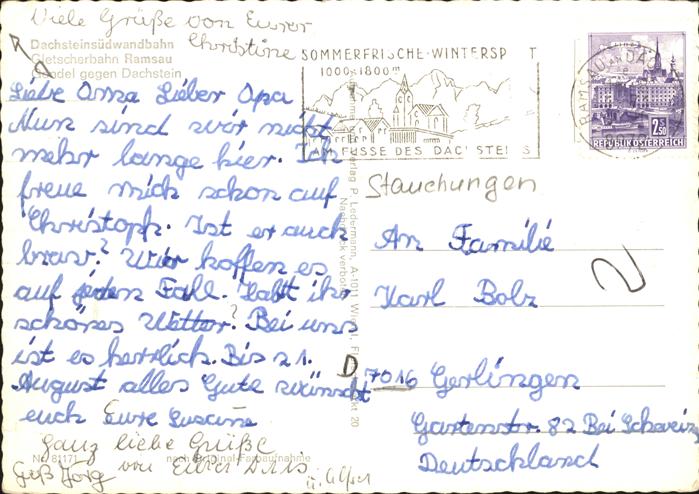 Viele Grüße von Eurer
Christine
Dachsteinsüdwandbahn
Gletscherbahn Ramsau
Gondel gegen Dachstein
Liebe Oma Lieber Opa
Nun sind wir nicht
mehr lange hier. Ich
freue mich schon auf
Christoph. Ist er auch
brav? Wir hoffen es
auf jeden Fall. Habt ihr
schönes Wetter? Bei uns
ist es herrlich. Bis 21.
August alles Gute wünscht
euch Eure Susanne
Ganz liebe Grüße
von Eurer
Gruß Jörg
Nr. 81171
nach Original-Farbaufnahme
SOMMERFRISCHE-WINTERSP T
1000-1800m
AM FUSSE DES DACHSTEINS
RAMSAU AM DA
2.50
S
REPUBLIK ÖSTERREICH
Verlag P. Ledermann, A-1011 Wien I,
Nachdruck verboten
Stauchungen
An Familie
Karl Bolz
D 7016 Gerlingen
Gartenstr. 82 Bei Schaviz
Deutschland